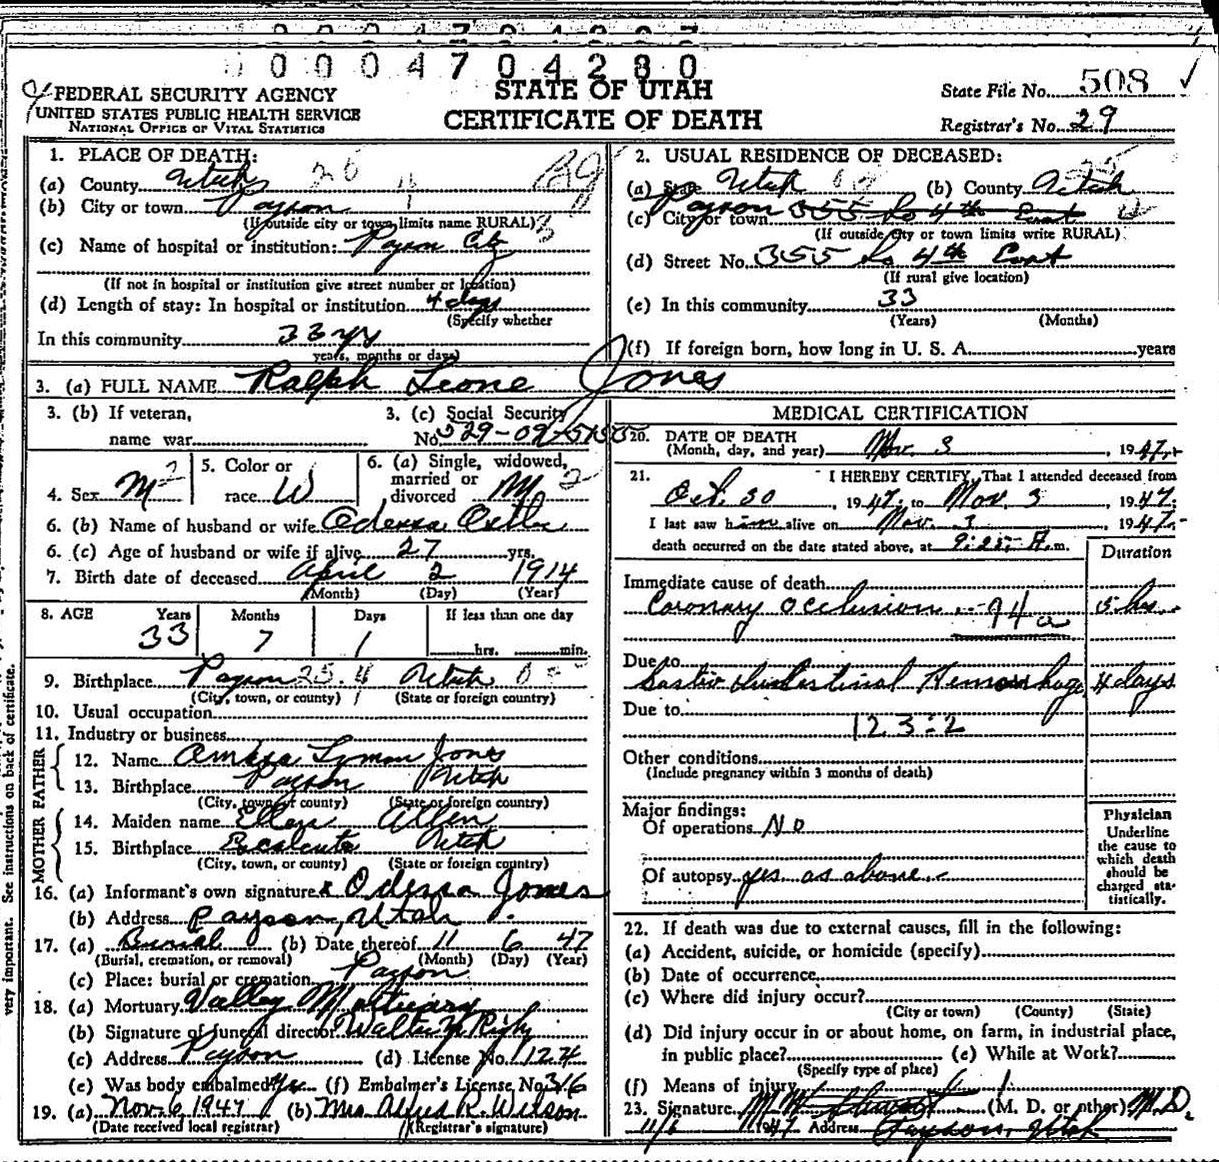 0 0 0 4 7 0 4 2 8 0
FEDERAL SECURITY AGENCY
UNITED STATES PUBLIC HEALTH SERVICE
NATIONAL OFFICE OF VITAL STATISTICS
STATE OF UTAH
CERTIFICATE OF DEATH
State File No. 508 ✓
Registrar's No. 29
1. PLACE OF DEATH:
(a) County Utah
(b) City or town Payson
(If outside city or town limits name RURAL)
(c) Name of hospital or institution: Payson City
(If not in hospital or institution give street number or location)
(d) Length of stay: In hospital or institution 4 days
(Specify whether
In this community 33 yrs
years, months or days)
2. USUAL RESIDENCE OF DECEASED:
(a) State Utah (b) County Utah
(c) City or town Payson 355 So 4th East
(If outside city or town limits write RURAL)
(d) Street No. 355 So 4th East
(If rural give location)
(e) In this community 33
(Years) (Months)
(f) If foreign born, how long in U. S. A. years
3. (a) FULL NAME Ralph Leone Jones
3. (b) If veteran,
name war
3. (c) Social Security
No. 529-09-5155
4. Sex M
5. Color or
race W
6. (a) Single, widowed,
married or
divorced M
6. (b) Name of husband or wife Odessa Ostler
6. (c) Age of husband or wife if alive 27 yrs.
7. Birth date of deceased April 2 1914
(Month) (Day) (Year)
8. AGE Years Months Days If less than one day
33 7 1 hrs. min.
9. Birthplace Payson Utah
(City, town, or county) (State or foreign country)
10. Usual occupation
11. Industry or business
FATHER
12. Name Amasa Lyman Jones
13. Birthplace Payson Utah
(City, town or county) (State or foreign country)
MOTHER
14. Maiden name Ellen Allen
15. Birthplace Escalante Utah
(City, town, or county) (State or foreign country)
16. (a) Informant's own signature x Odessa Jones
(b) Address Payson, Utah
17. (a) Burial (b) Date thereof 11 6 47
(Burial, cremation, or removal) (Month) (Day) (Year)
(c) Place: burial or cremation Payson
18. (a) Mortuary Valley Mortuary
(b) Signature of funeral director Walter
(c) Address Payson (d) License No. 1124
(e) Was body embalmed? yes (f) Embalmer's License No. 316
19. (a) Nov. 6 1947 (b) Mrs Alfred R. Wilson
(Date received local registrar) (Registrar's signature)
MEDICAL CERTIFICATION
20. DATE OF DEATH
(Month, day, and year) Nov. 3, 1947
21. I HEREBY CERTIFY, That I attended deceased from
Oct. 30, 1947, to Nov. 3, 1947.
I last saw him alive on Nov. 3, 1947.
death occurred on the date stated above, at 9:25 A.m.
Duration
Immediate cause of death
Coronary occlusion 94a 5 hrs
Due to
Gastro Intestinal Hemorrhage 4 days
Due to
123:2
Other conditions
(Include pregnancy within 3 months of death)
Major findings:
Of operations No
Of autopsy yes. as above.
Physician
Underline
the cause to
which death
should be
charged sta-
tistically.
22. If death was due to external causes, fill in the following:
(a) Accident, suicide, or homicide (specify)
(b) Date of occurrence
(c) Where did injury occur?
(City or town) (County) (State)
(d) Did injury occur in or about home, on farm, in industrial place,
in public place? (e) While at Work?
(Specify type of place)
(f) Means of injury
23. Signature M. M. Stewart (M. D. or other) M.D.
11/6 1947 Address Payson, Utah
very important. See instructions on back of certificate.